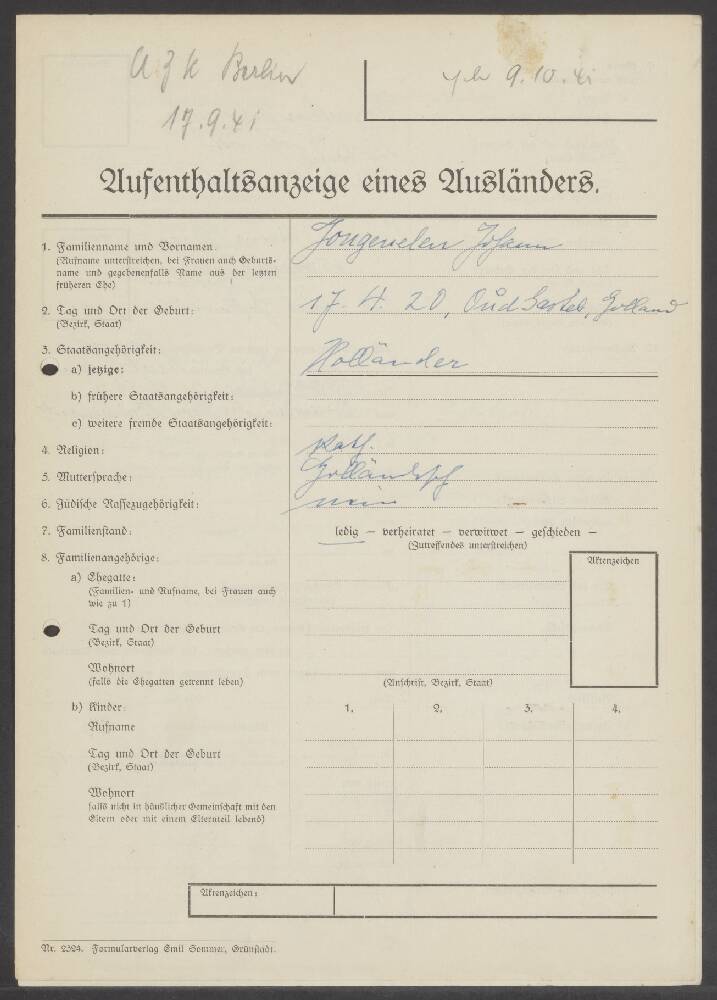 A Z K Berlin
9.10.41
17.9.41
Aufenthaltsanzeige eines Ausländers.
1. Familienname und Vornamen.
Jongenelen Johann
(Rufname unterstreichen, bei Frauen auch Geburts-
name und gegebenenfalls Name aus der letzten
früheren Ehe)
2. Tag und Ort der Geburt:
17. 4. 20, Oud Gastel, Holland
(Bezirk, Staat)
3. Staatsangehörigkeit:
a) jetzige:
Holländer
b) frühere Staatsangehörigkeit:
c) weitere fremde Staatsangehörigkeit:
4. Religion:
Kath.
5. Muttersprache:
Holländisch
6. Jüdische Rassezugehörigkeit:
nein
7. Familienstand:
ledig — verheiratet — verwitwet — geschieden —
(Zutreffendes unterstreichen)
8. Familienangehörige:
Aktenzeichen
a) Ehegatte:
(Familien- und Rufname, bei Frauen auch
wie zu 1)
Tag und Ort der Geburt
(Bezirk, Staat)
Wohnort
(falls die Ehegatten getrennt leben)
(Anschrift, Bezirk, Staat)
b) Kinder:
1. 2. 3. 4.
Rufname
Tag und Ort der Geburt
(Bezirk, Staat)
Wohnort
falls nicht in häuslicher Gemeinschaft mit den
Eltern oder mit einem Elternteil lebend)
Aktenzeichen:
Nr. 2324. Formularverlag Emil Sommer, Grünstadt.